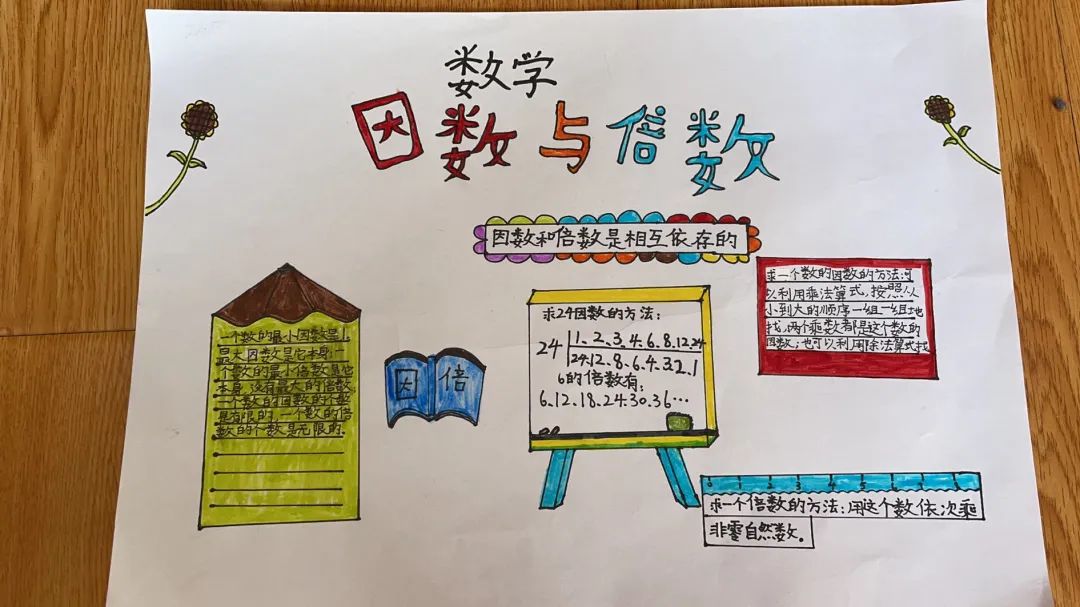 数学
因数与倍数
因数和倍数是相互依存的
一个数的最小因数是1,
最大因数是它本身,一
个数的最小倍数是它
本身,没有最大的倍数,
一个数的因数的个数
是有限的,一个数的倍
数的个数是无限的.
因 倍
求24因数的方法:
24 1、2、3、4、6、8、12、24
24、12、8、6、4、3、2、1
6的倍数有:
6、12、18、24、30、36…
求一个数的因数的方法:可
以利用乘法算式,按照从
小到大的顺序一组一组地
找,两个乘数都是这个数的
因数;也可以利用除法算式找
0 1 2 3 4 5 6 7 8
求一个倍数的方法:用这个数依次乘
非零自然数。